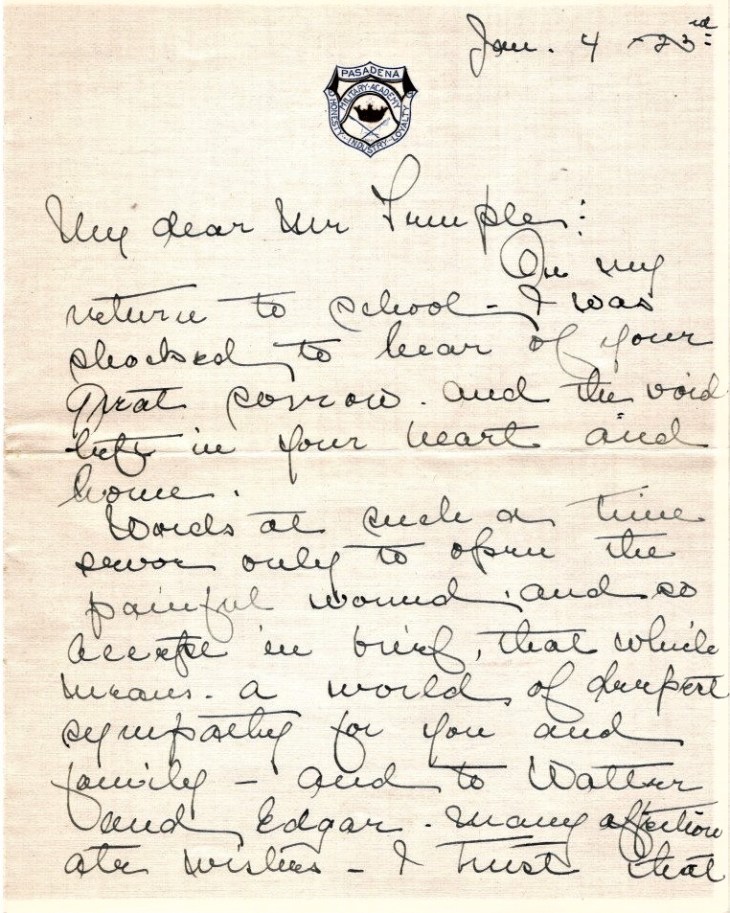 Jan. 4 - 23rd
PASADENA
MILITARY ACADEMY
HONESTY - INDUSTRY - LOYALTY
My dear Mr Temple:
On my
return to school - I was
shocked to hear of your
great sorrow. and the void
left in your heart and
home.
Words at such a time
serve only to open the
painful wound, and so
accept in brief, that which
means - a world of deepest
sympathy for you and
family - and to Walter
and Edgar. Many affection
ate wishes - I trust that